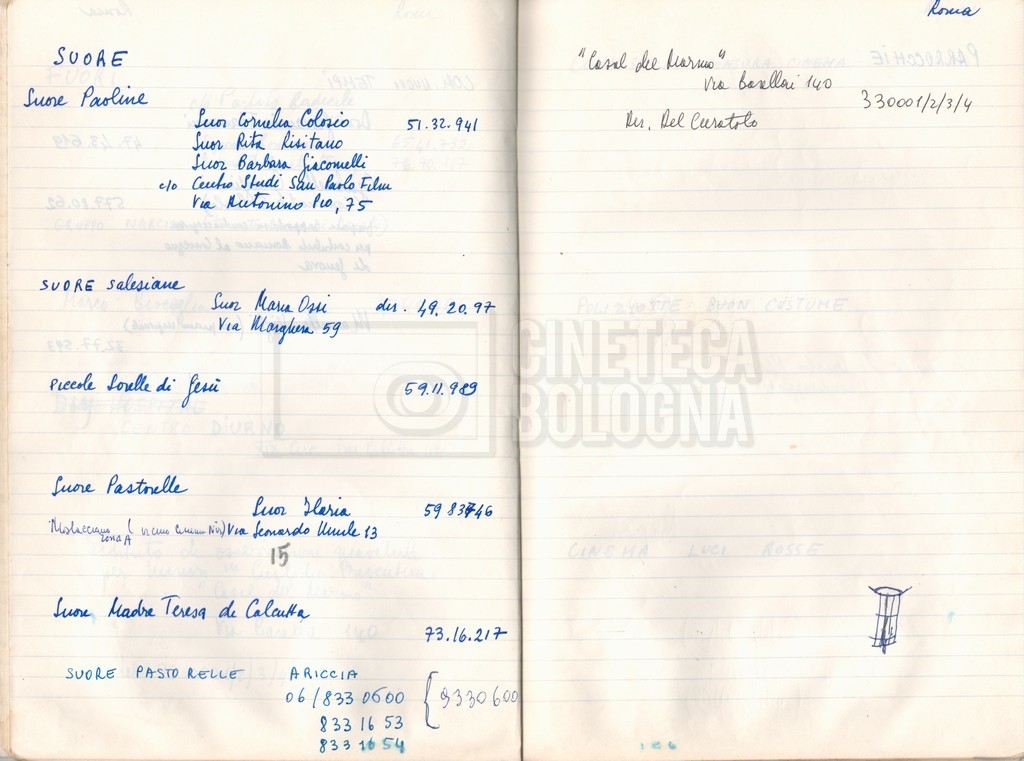 SUORE
Suore Paoline
Suor Cornelia Colosio 51.32.941
Suor Rita Risitano
Suor Barbara Giacomelli
c/o Centro Studi San Paolo Film
Via Antonino Pio, 75
SUORE Salesiane
Suor Maria Ossi der. 49.20.97
Via Marghera 59
Piccole Sorelle di Gesù
59.11.989
Suore Pastorelle
Suor Ilaria 5983746
Mostacciano (vicino
zona A
Via Leonardo Umile 13
15
Suore Madre Teresa de Calcutta
73.16.217
SUORE PASTORELLE ARICCIA
06/833 0600 {9330600
833 16 53
833 16 54
Roma
"Casal del Marmo"
Via Barellai 140
330001/2/3/4
Dir. Del Curatolo
PARROCCHIE
POLIZIOTTE BUON COSTUME
CINEMA LUCI ROSSE
CINETECA
BOLOGNA